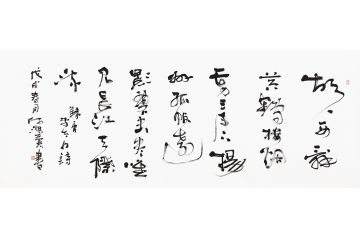 故人西辞
黄鹤楼烟
花三月下揚
州孤帆遠
影碧空尽唯
見長江天際
流
李白詩
戊戌春月 書